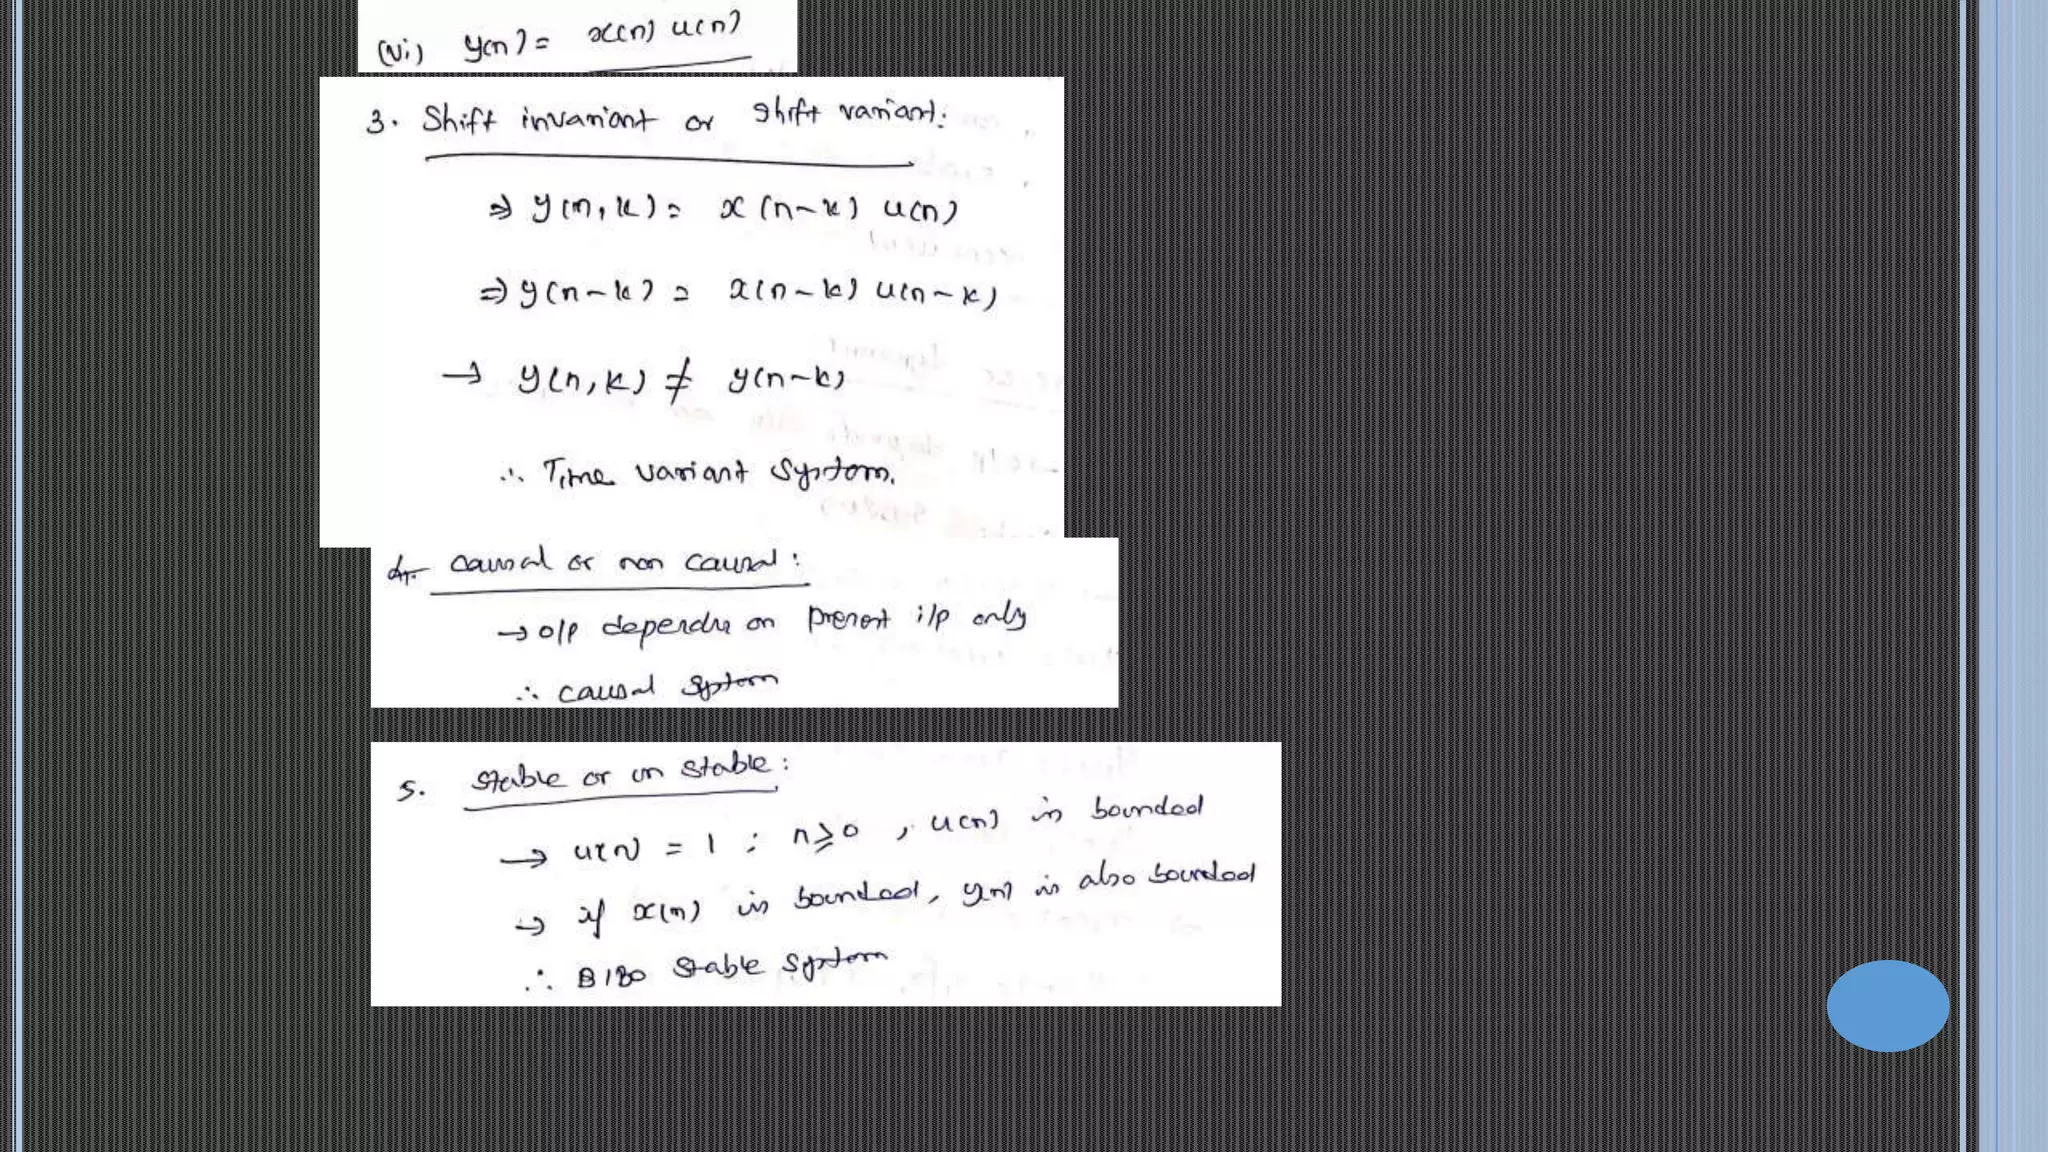 (vi) y(n) = x(n) u(n)
3. Shift invariant or shift variant:
⇒ y(n,k) = x(n-k) u(n)
⇒ y(n-k) = x(n-k) u(n-k)
→ y(n,k) ≠ y(n-k)
∴ Time variant system.
4. causal or non causal:
→ o/p depends on present i/p only
∴ causal system
5. stable or un stable:
→ u(n) = 1 ; n≥0 , u(n) is bounded
→ if x(n) is bounded, y(n) is also bounded
∴ BIBO stable system